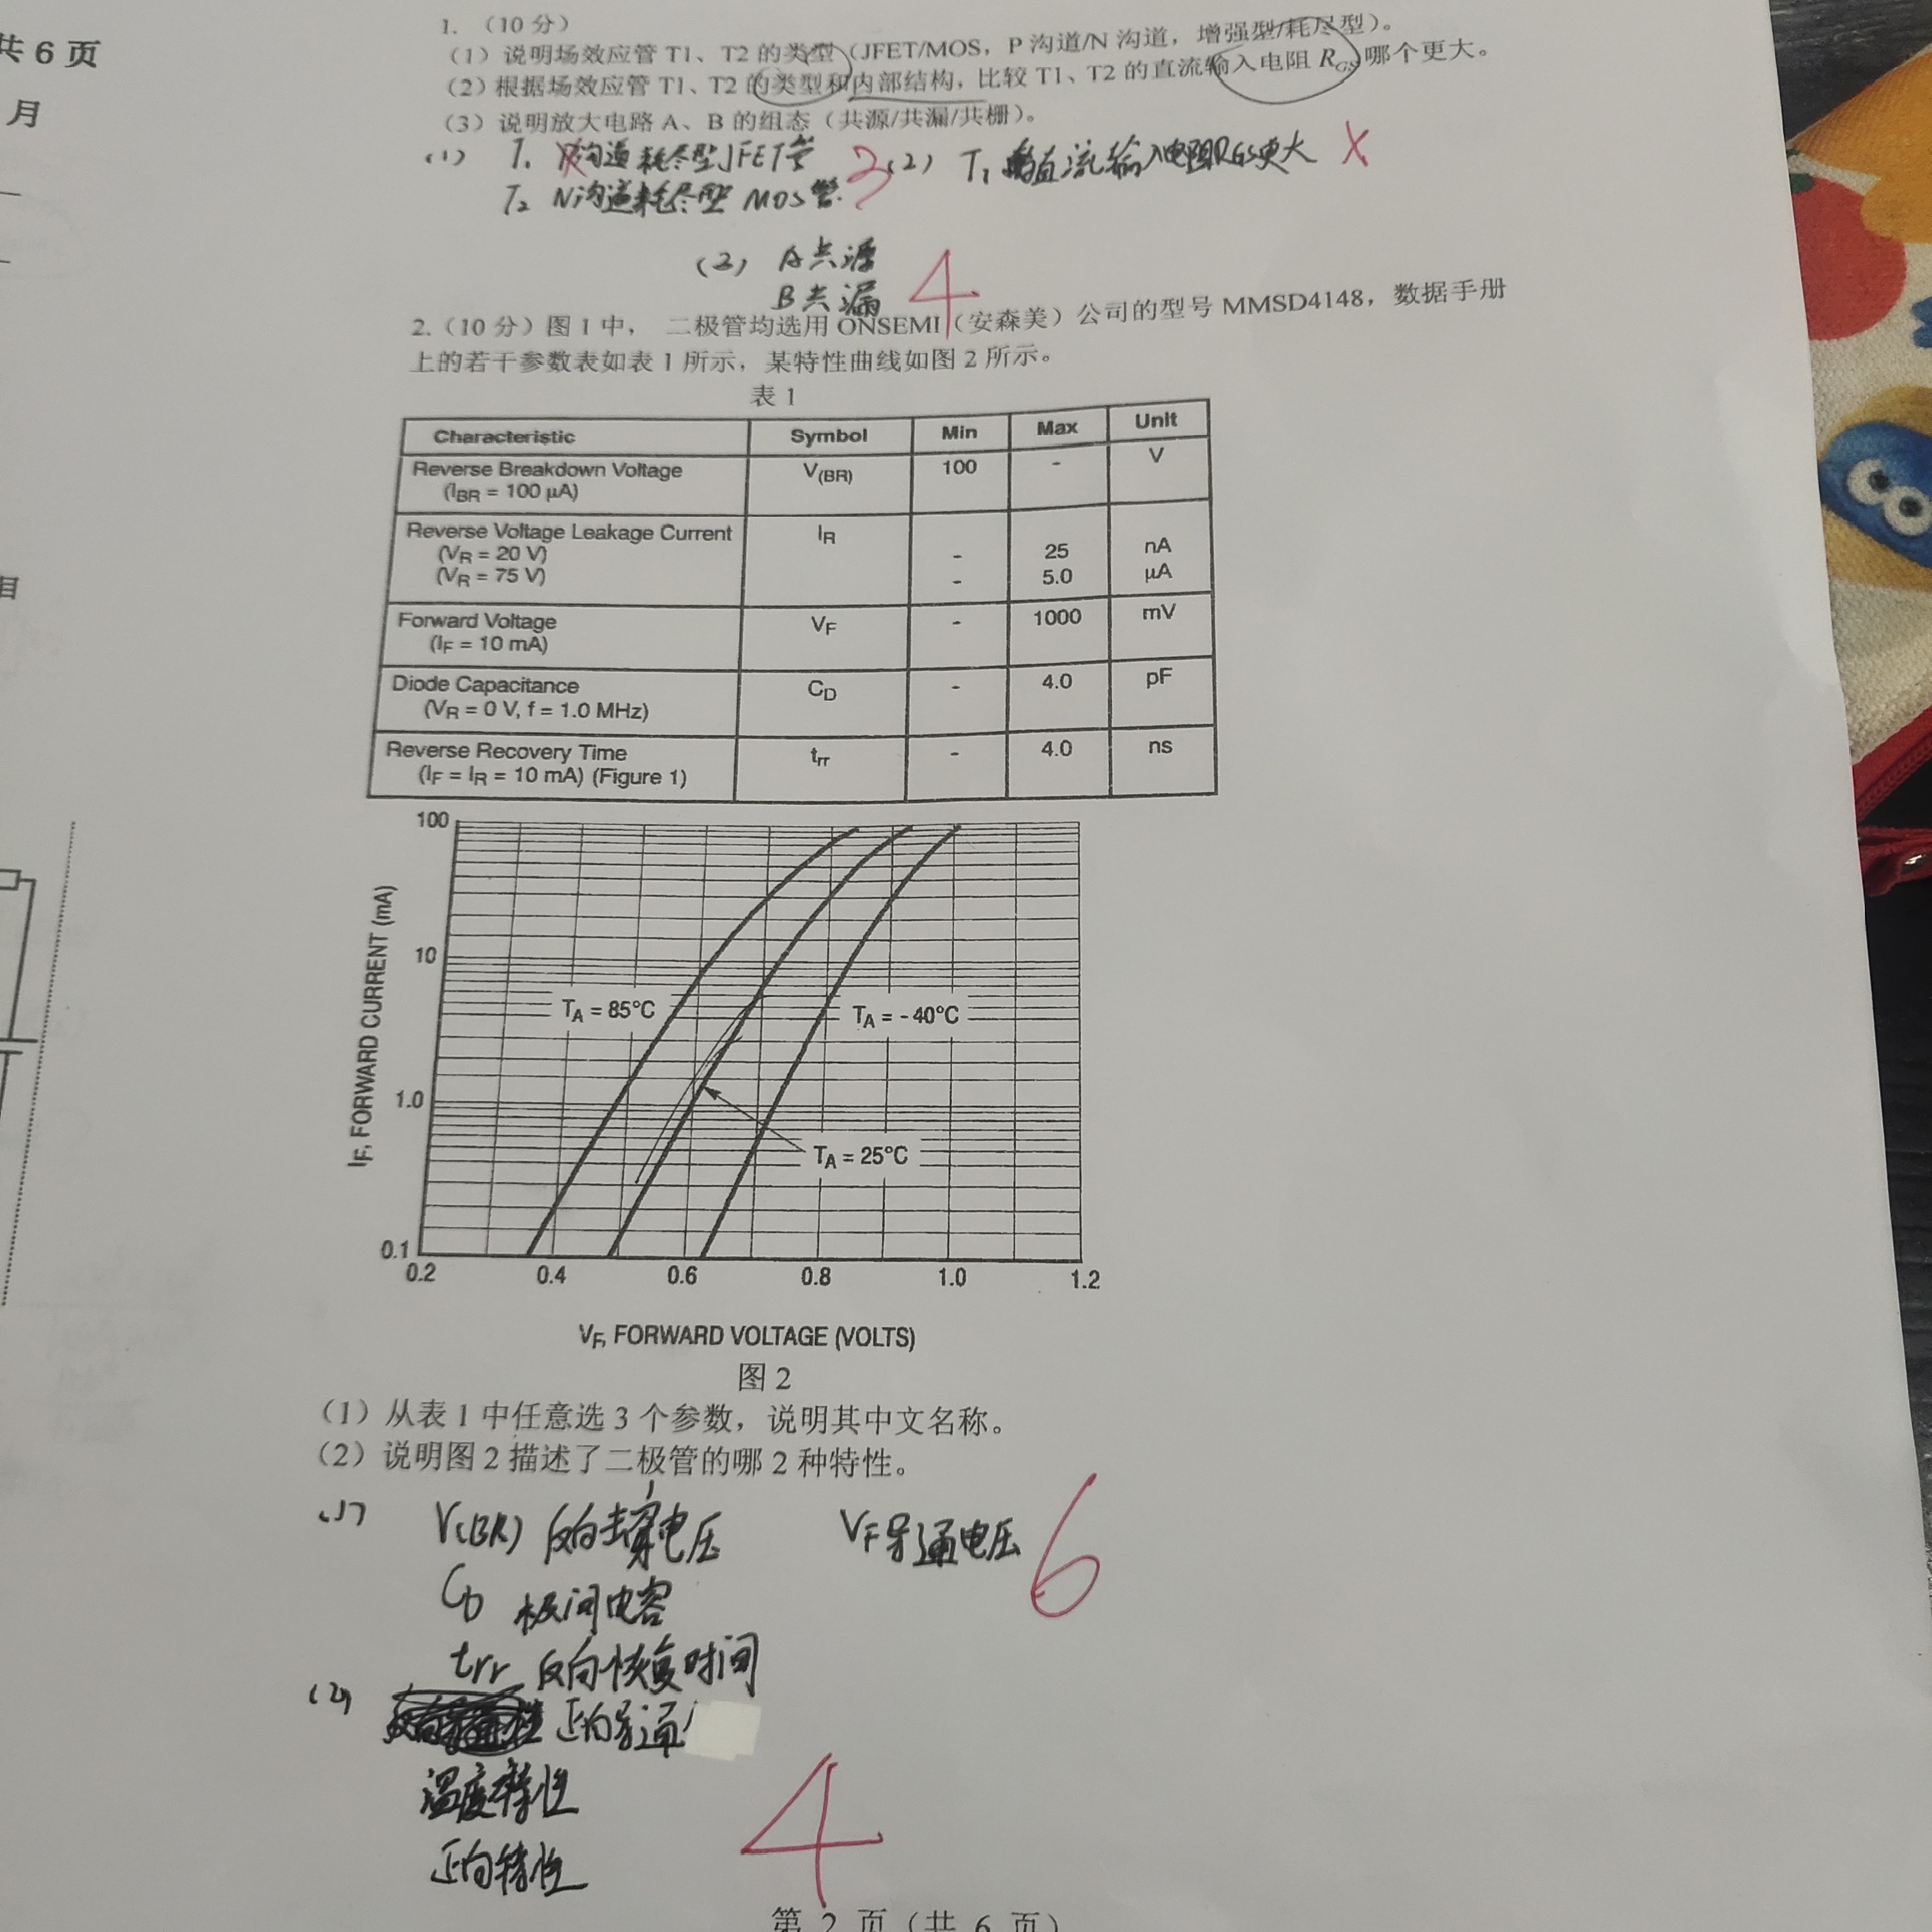 共 6 页
月
1. （10 分）
（1）说明场效应管 T1、T2 的类型（JFET/MOS，P 沟道/N 沟道，增强型/耗尽型）。
（2）根据场效应管 T1、T2 的类型和内部结构，比较 T1、T2 的直流输入电阻 RGS 哪个更大。
（3）说明放大电路 A、B 的组态（共源/共漏/共栅）。
(1) T1 沟道耗尽型JFET管 3
T2 N沟道耗尽型 MOS管.
(2) T1 直流输入电阻RGS更大 X
(3) A共源
B共漏 4
2.（10 分）图 1 中， 二极管均选用 ONSEMI（安森美）公司的型号 MMSD4148，数据手册
上的若干参数表如表 1 所示，某特性曲线如图 2 所示。
表 1
Characteristic Symbol Min Max Unit
Reverse Breakdown Voltage V(BR) 100 - V
(IBR = 100 μA)
Reverse Voltage Leakage Current IR
(VR = 20 V) - 25 nA
(VR = 75 V) - 5.0 μA
Forward Voltage VF - 1000 mV
(IF = 10 mA)
Diode Capacitance CD - 4.0 pF
(VR = 0 V, f = 1.0 MHz)
Reverse Recovery Time trr - 4.0 ns
(IF = IR = 10 mA) (Figure 1)
100
10
1.0
0.1
IF, FORWARD CURRENT (mA)
TA = 85°C
TA = - 40°C
TA = 25°C
0.2 0.4 0.6 0.8 1.0 1.2
VF, FORWARD VOLTAGE (VOLTS)
图 2
（1）从表 1 中任意选 3 个参数，说明其中文名称。
（2）说明图 2 描述了二极管的哪 2 种特性。
(1) V(BR) 反向击穿电压 VF导通电压 6
CD 极间电容
trr 反向恢复时间
(2) 正向导通
温度特性 4
正向特性
第 2 页（共 6 页）